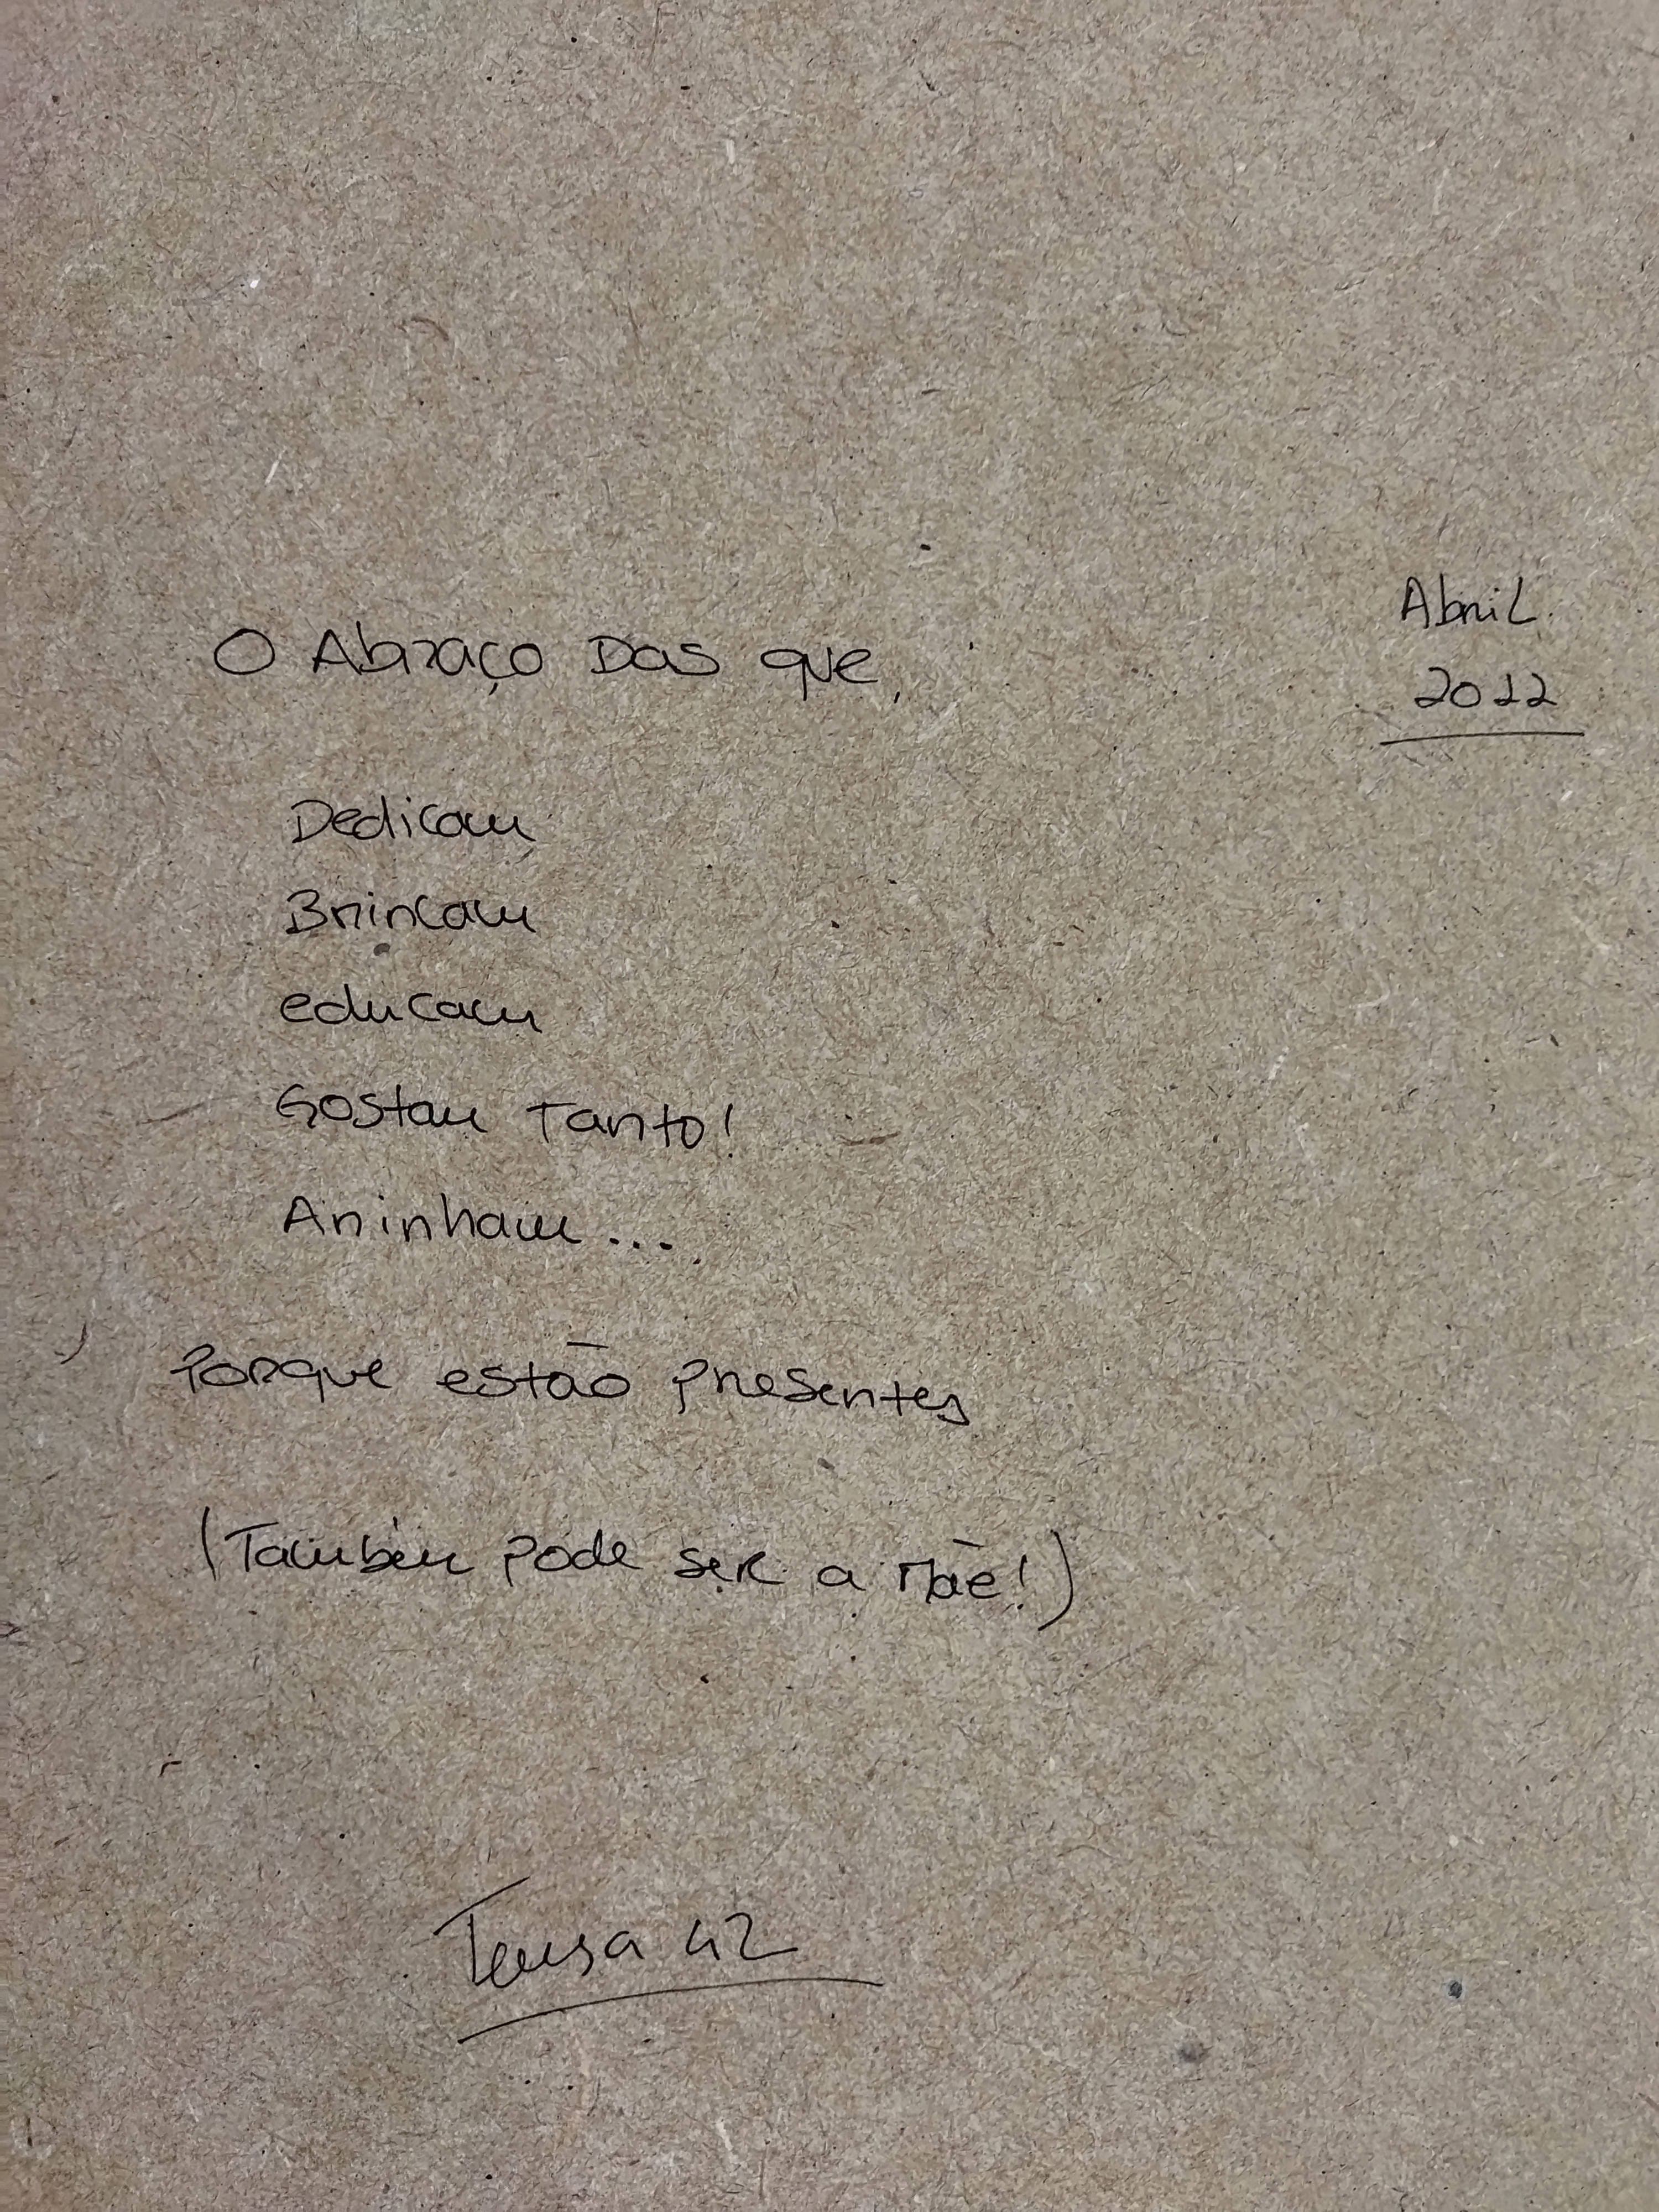 Abril
2022
O Abraço Das que,
Dedicam
Brincam
educam
Gostam Tanto!
Aninham...
Porque estão presentes
(Também pode ser a Mãe!)
Teresa 42